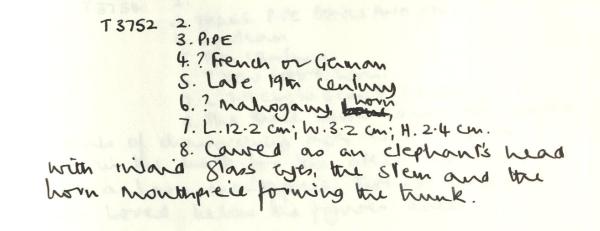 T3752 2.
3. PIPE
4. ? French or German
5. Late 19th century
6. ? mahogany, horn
7. L.12.2 cm; W.3.2 cm; H.2.4 cm.
8. Carved as an elephant's head
with inlaid glass eyes, the stem and the
horn mouthpiece forming the trunk.